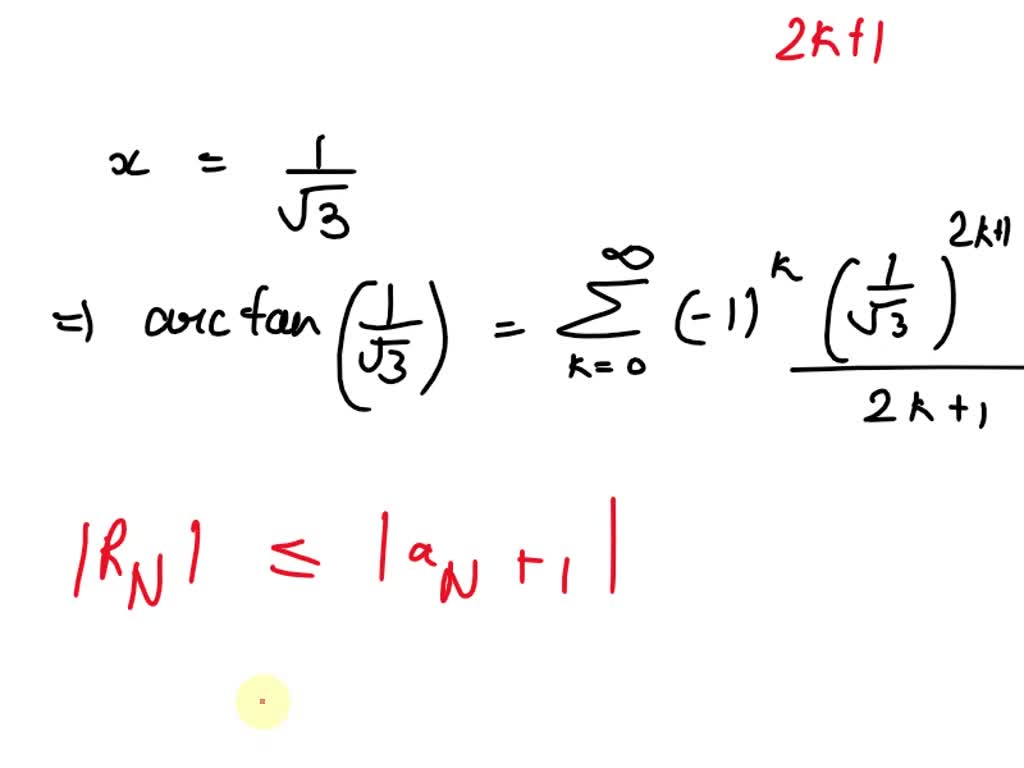 2k+1
x = 1/√3
⇒ arctan(1/√3) = ∑_{k=0}^{∞} (-1)^k (1/√3)^{2k+1} / 2k+1
|R_N| ≤ |a_{N+1}|